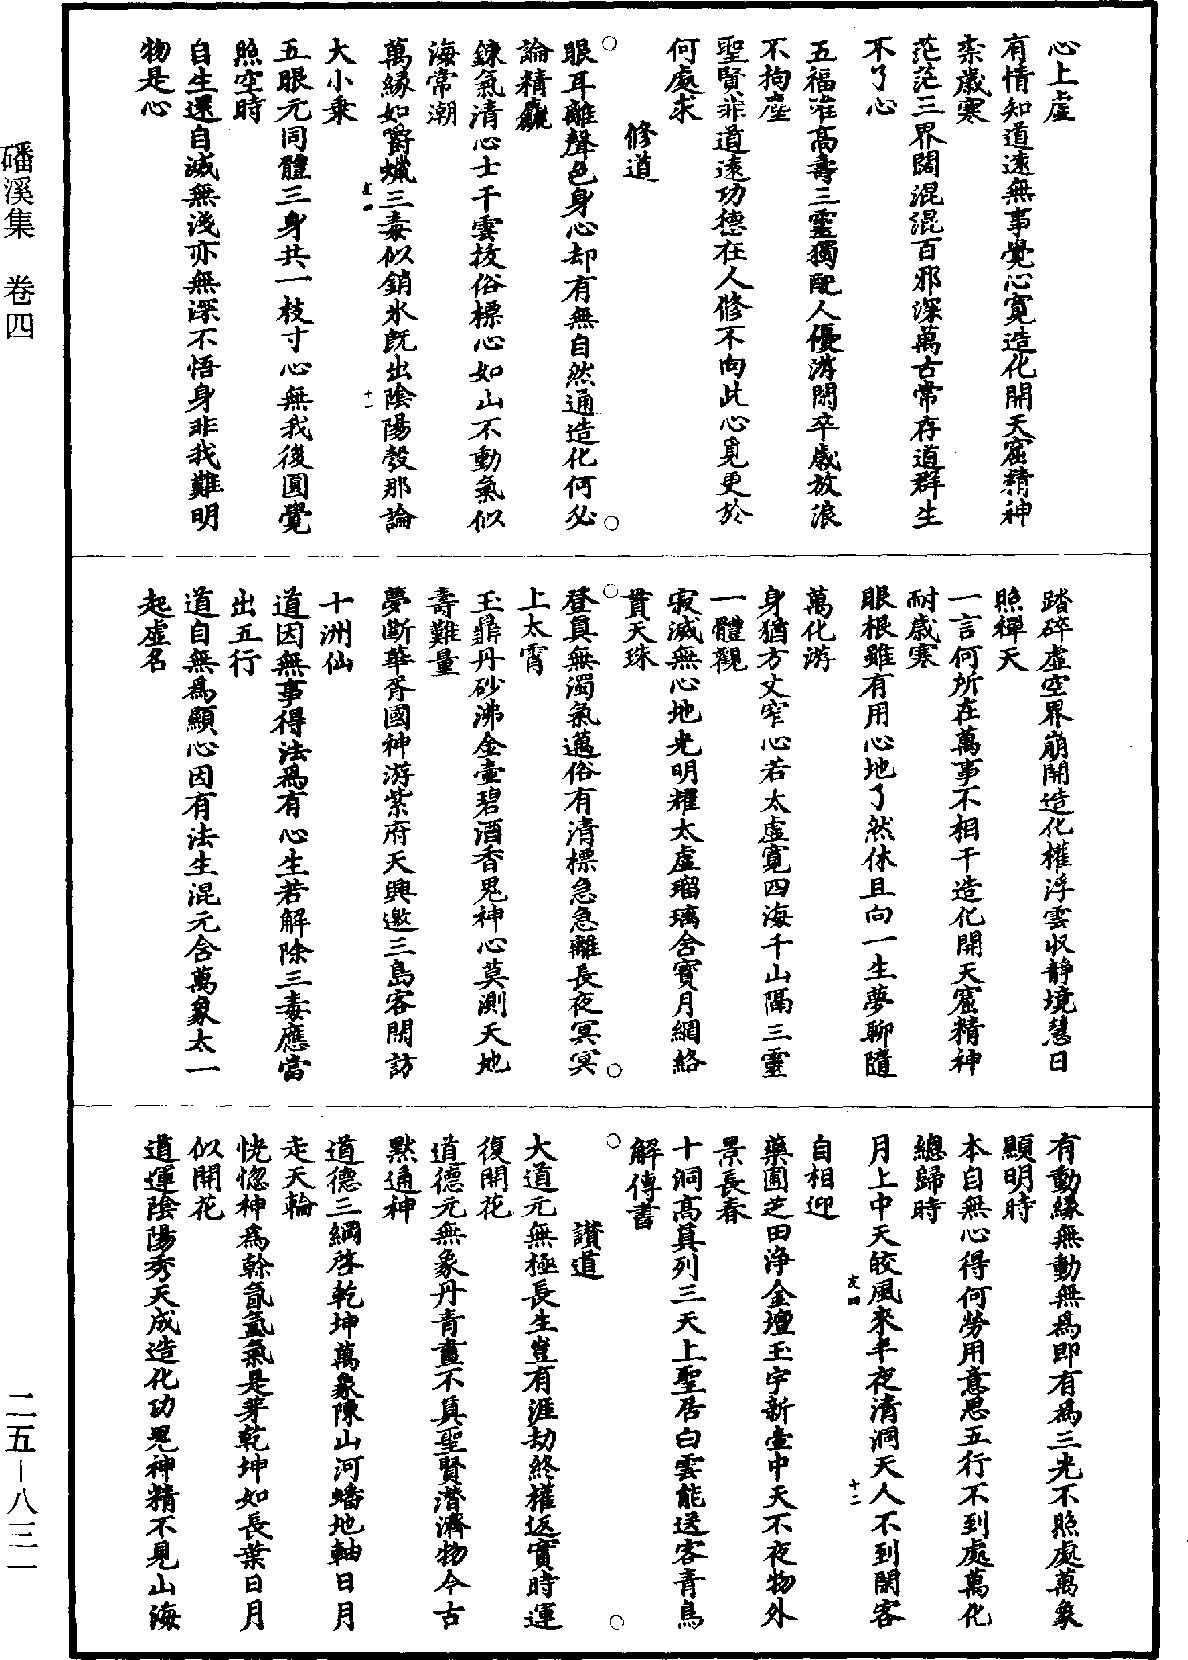 心上虛
有情知道遠無事覺心寬造化開天窟精神
柰歲寒
茫茫三界闊混混百邪深萬古常存道群生
不了心
五福滩高壽三靈獨配人優游閑卒歲放浪
不拘塵
聖賢非道遠功德在人修不向此心覓更於
何處求
修道
眼耳離聲色身心却有無自然通造化何必
論精麤
鍊氣清心士干雲拔俗標心如山不動氣似
海常潮
萬緣如嚼蠟三毒似銷氷旣出陰陽彀那論
大小乗
五眼元同體三身共一枝寸心無我後圓覺
照空時
自生還自滅無淺亦無深不悟身非我難明
物是心
踏碎虛空界崩開造化權浮雲収靜境慧日
照禪天
一言何所在萬事不相干造化開天窟精神
耐歲寒
眼根雖有用心地了然休且向一生夢聊隨
萬化游
身猶方丈窄心若太虛寬四海千山隔三靈
一體觀
寂滅無心地光明耀太虛瑠璃含寶月網絡
貫天珠
登真無濁氣邁俗有清標急急離長夜冥冥
上太霄
玉鼎丹砂沸金壷碧酒香鬼神心莫測天地
壽難量
夢斷華胥國神游紫府天興邀三島客閑訪
十洲仙
道因無事得法爲有心生若解除三毒應當
出五行
道自無爲顯心因有法生混元含萬象太一
起虛名
有動緣無動無爲即有爲三光不照處萬象
顯明時
本自無心得何勞用意思五行不到處萬化
總歸時
月上中天皎風來半夜清洞天人不到閑客
自相迎
藥圃芝田淨金壇玉宇新壷中天不夜物外
景長春
十洞高真列三天上聖居白雲能送客青鳥
解傳書
讃道
大道元無極長生豈有涯劫終權返實時運
復開花
道德元無象丹青畫不真聖賢潛濟物今古
黙通神
道德三綱啓乾坤萬象陳山河蟠地軸日月
走天輪
恍惚神爲幹氤氳氣是芽乾坤如長葉日月
似開花
道運陰陽秀天成造化功鬼神精不見山海
磻溪集　卷四
二五－八三一